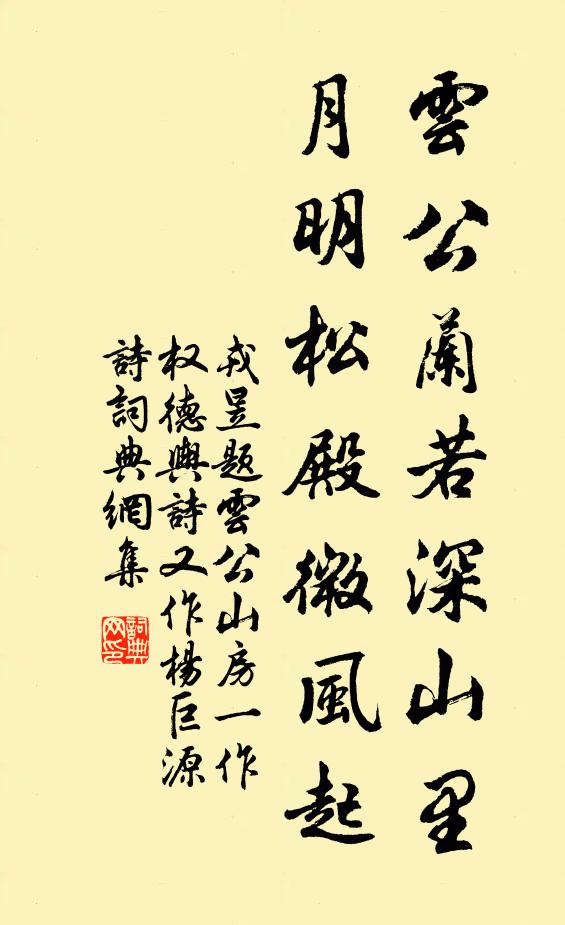 雲公蘭若深山里
月明松殿微風起
戎昱题雲公山房一作
权德輿詩又作楊巨源
詩詞典網集
詞典
网印